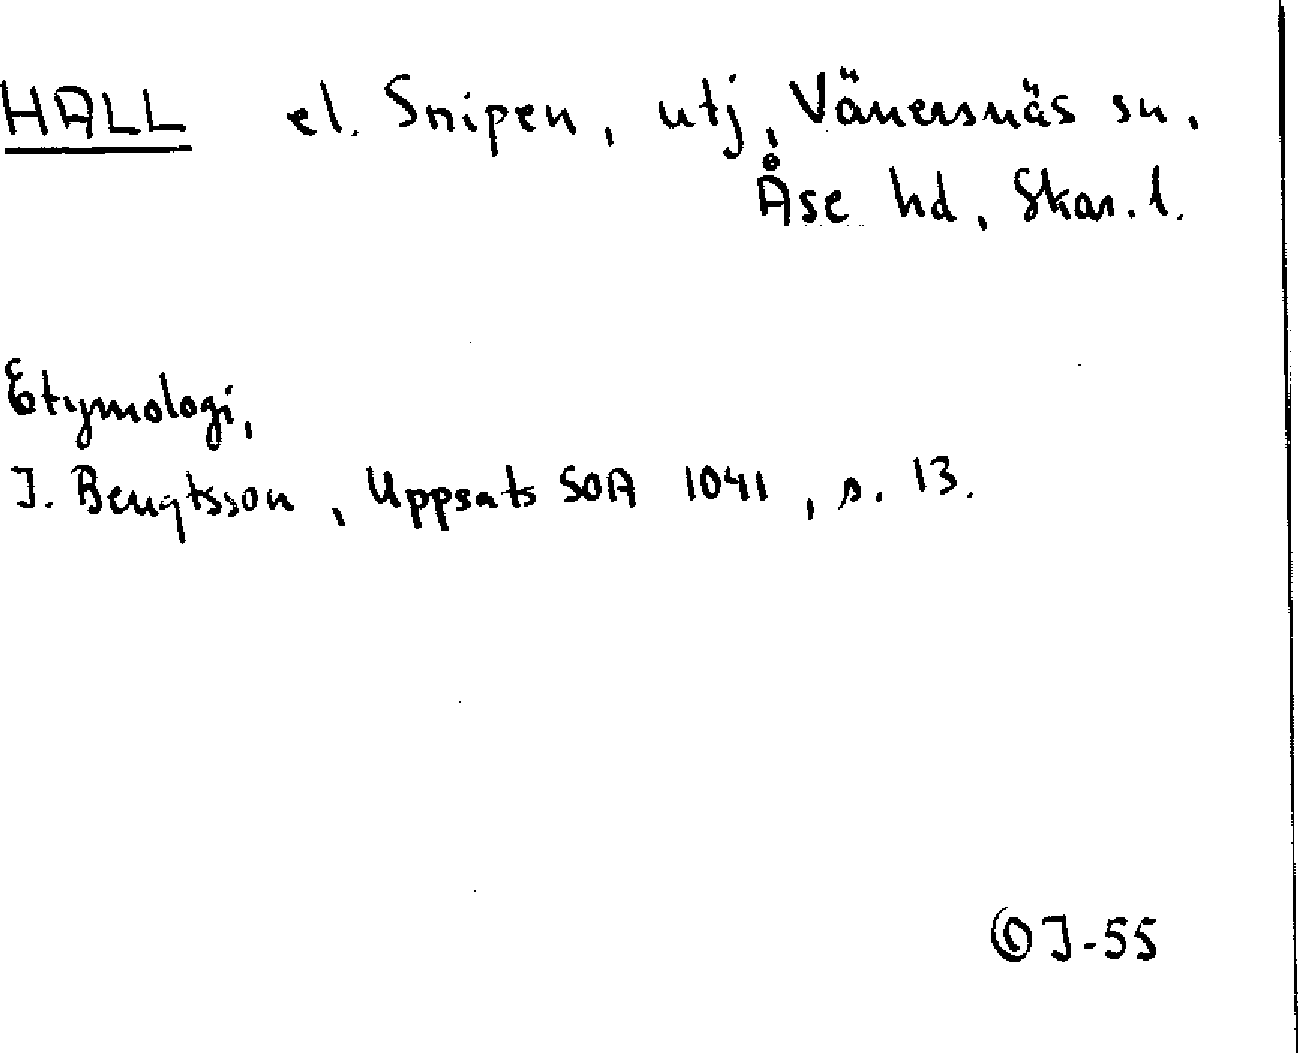 HALL el. Snipen, utj, Vänersnäs sn,
Åse hd, Skar. l.
Etymologi,
I. Bengtsson, Uppsats SOA 1041, s. 13.
OJ-55